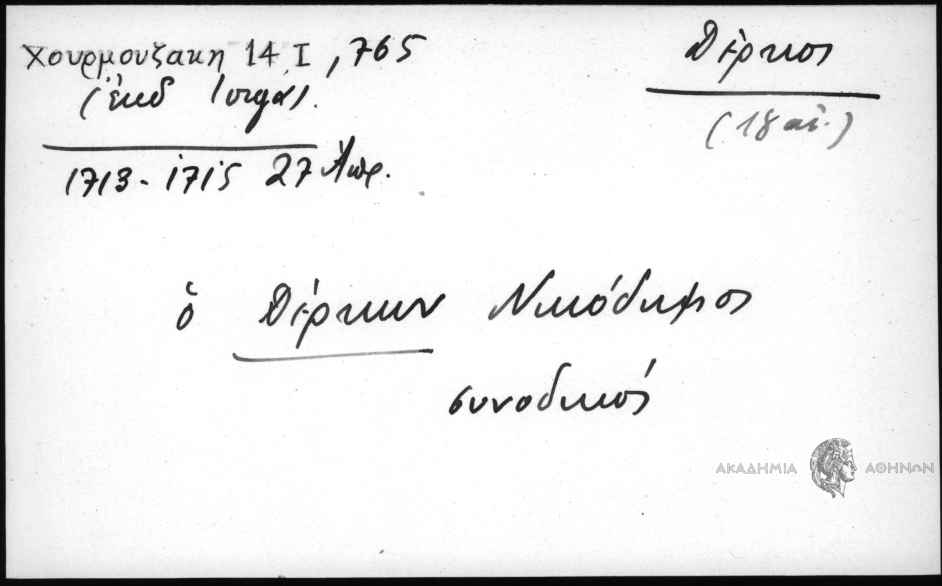 Χουρμουζακη 14 I, 765
Δέρκοι
(ἐκδ Ἰόργα).
(18 αἰ.)
1713 - 1715 27 Ἀπρ.
ὁ Δέρκων Νικόδημος
συνοδικός
ΑΚΑΔΗΜΙΑ ΑΘΗΝΩΝ